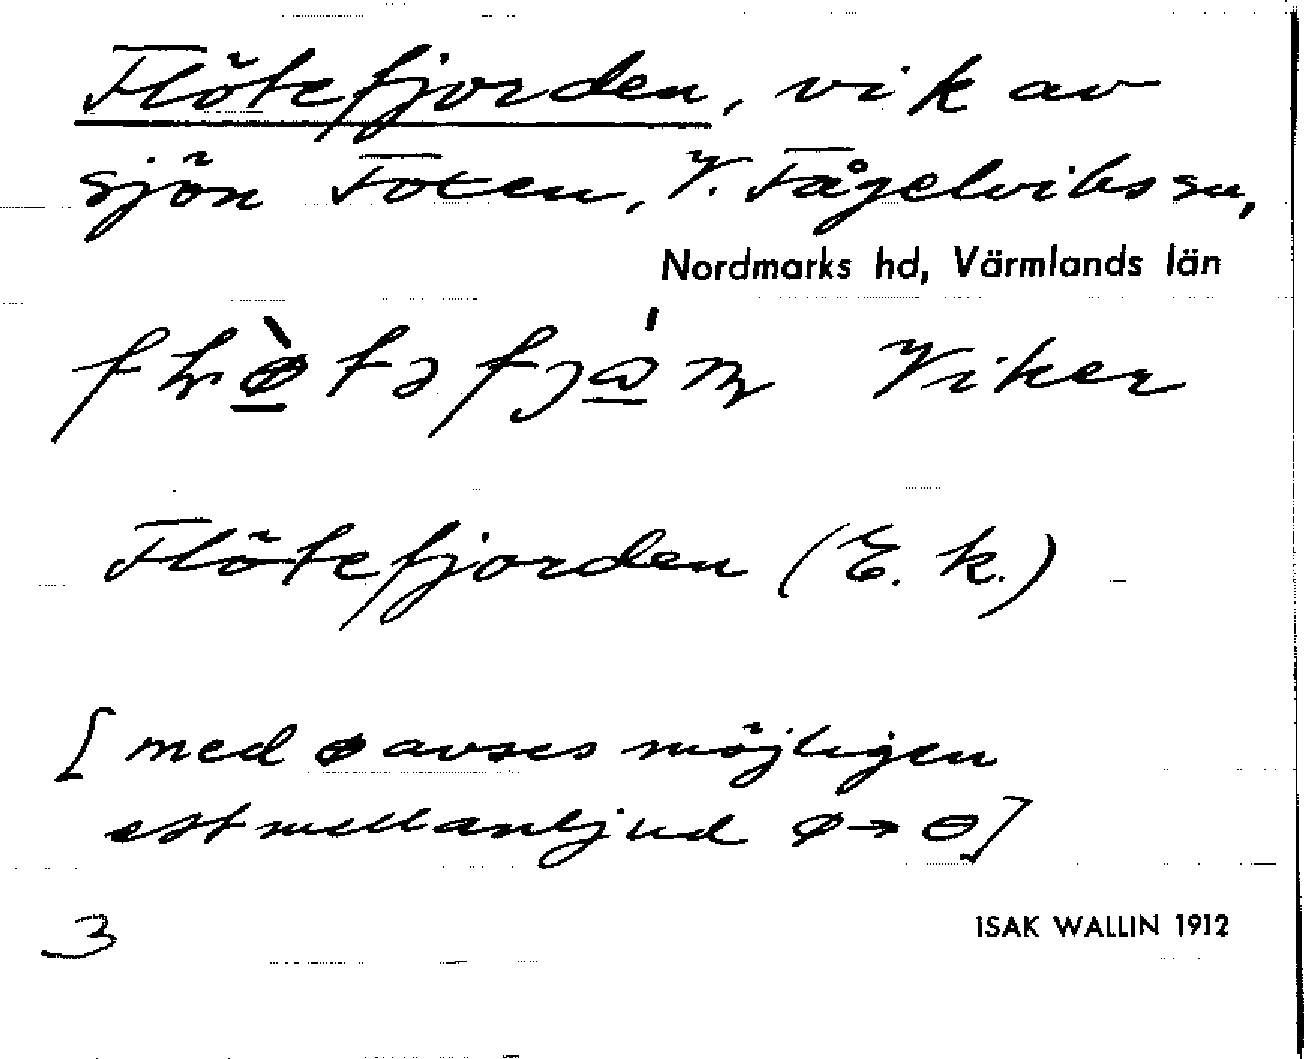 Flötefjorden, vik av
sjön Foxen, V. Fågelviks sn,
Nordmarks hd, Värmlands län
Viker
Flötefjorden (E. k.)
[med ø avses möjligen
ett mellanljud ø → ɵ]
3
ISAK WALLIN 1912